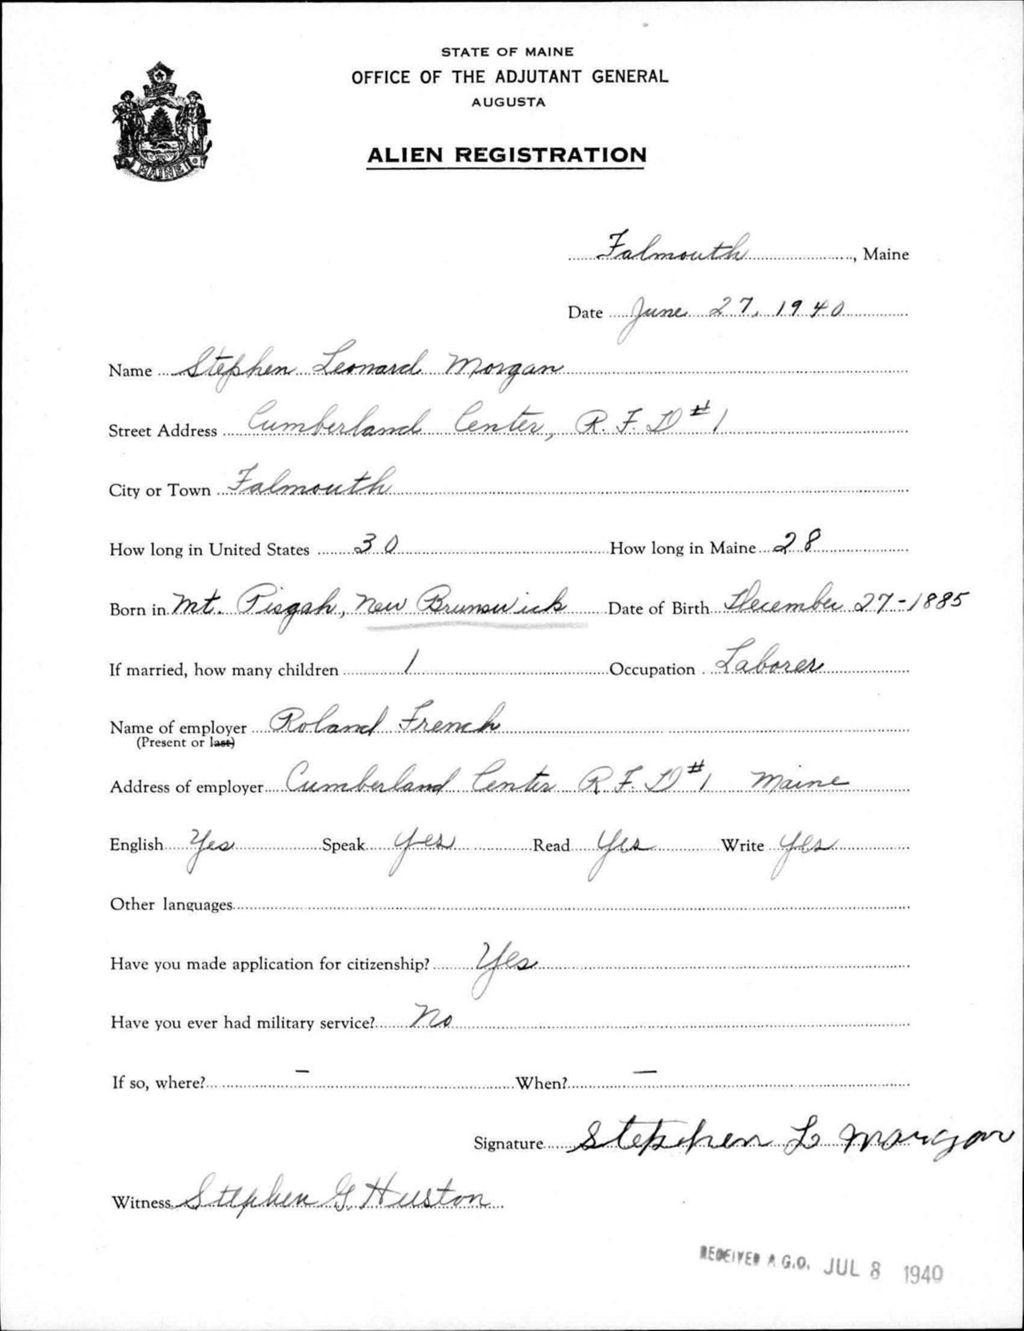 STATE OF MAINE
OFFICE OF THE ADJUTANT GENERAL
AUGUSTA
ALIEN REGISTRATION
MAINE
Falmouth, Maine
Date June 27, 1940
Name Stephen Leonard Morgan
Street Address Cumberland Center, R. F. D #1
City or Town Falmouth
How long in United States 30 How long in Maine 28
Born in Mt. Pisgah, New Brunswick Date of Birth December 27-1885
If married, how many children 1 Occupation Laborer
Name of employer Roland French
(Present or last)
Address of employer Cumberland Center R. F. D #1 Maine
English Yes Speak Yes Read Yes Write Yes
Other languages
Have you made application for citizenship? Yes
Have you ever had military service? No
If so, where? – When? –
Signature Stephen L Morgan
Witness Stephen G. Huston
RECEIVED A.G.O. JUL 8 1940